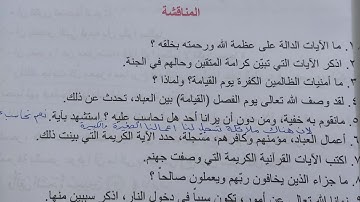 المناقشة
١. ما الآيات الدالة على عظمة الله ورحمته بخلقه ؟
٢. اذكر الآيات التي تبيّن كرامة المتقين وحالهم في الجنة.
٣. ما أمنيات الظالمين الكفرة يوم القيامة؟ ولماذا ؟
٤. لقد وصف الله تعالى يوم الفصل (القيامة) بين العباد، تحدث عن ذلك.
٥. ماتقوم به خفية، ومن دون أن يرانا أحد هل نحاسب عليه ؟ استشهد بآية. نعم نحاسب
لان هناك ملائكة تسجل لنا اعمالنا الصغيرة والكبيرة
٦. أعمال العباد، مؤمنهم وكافرهم، مسجلة، حدد الآية الكريمة التي بينت ذلك.
٧. اكتب الآيات القرآنية الكريمة التي وصفت جهنم.
٨. ما جزاء الذين يخافون ربّهم ويعملون صالحاً ؟
نهانا الله تعالى عن أمور، تكون سبباً في دخول النار، اذكر سببين منها.